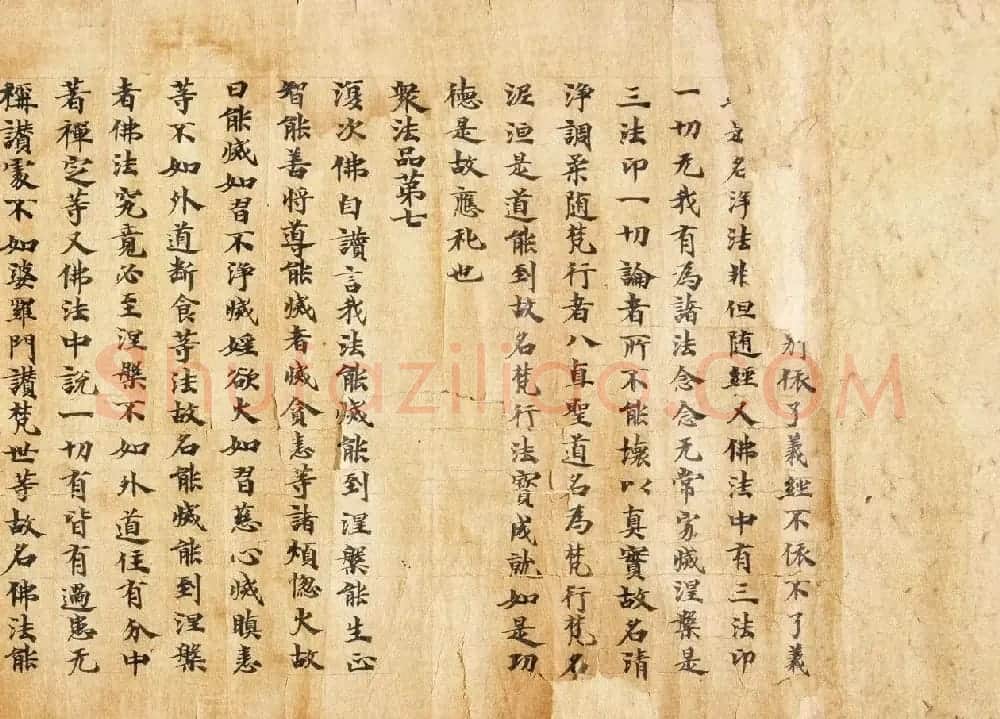 依了義經不依不了義
是名淨法非但随經又佛法中有三法印
一切无我有為諸法念念无常寂滅涅槃是
三法印一切論者所不能壞以真實故名清
淨調柔随梵行者八直聖道名為梵行梵名
泥洹是道能到故名梵行法寶成就如是功
德是故應礼也
衆法品第七
復次佛自讚言我法能滅能到涅槃能生正
智能善將導能滅者滅貪恚等諸煩惱火故
曰能滅如習不淨滅婬欲火如習慈心滅瞋恚
等不如外道断食等法故名能滅能到涅槃
者佛法究竟必至涅槃不如外道住有分中
著禪定等又佛法中說一切有皆有過患无
稱讚處不如婆羅門讚梵世等故名佛法能
Shufaziliao.COM